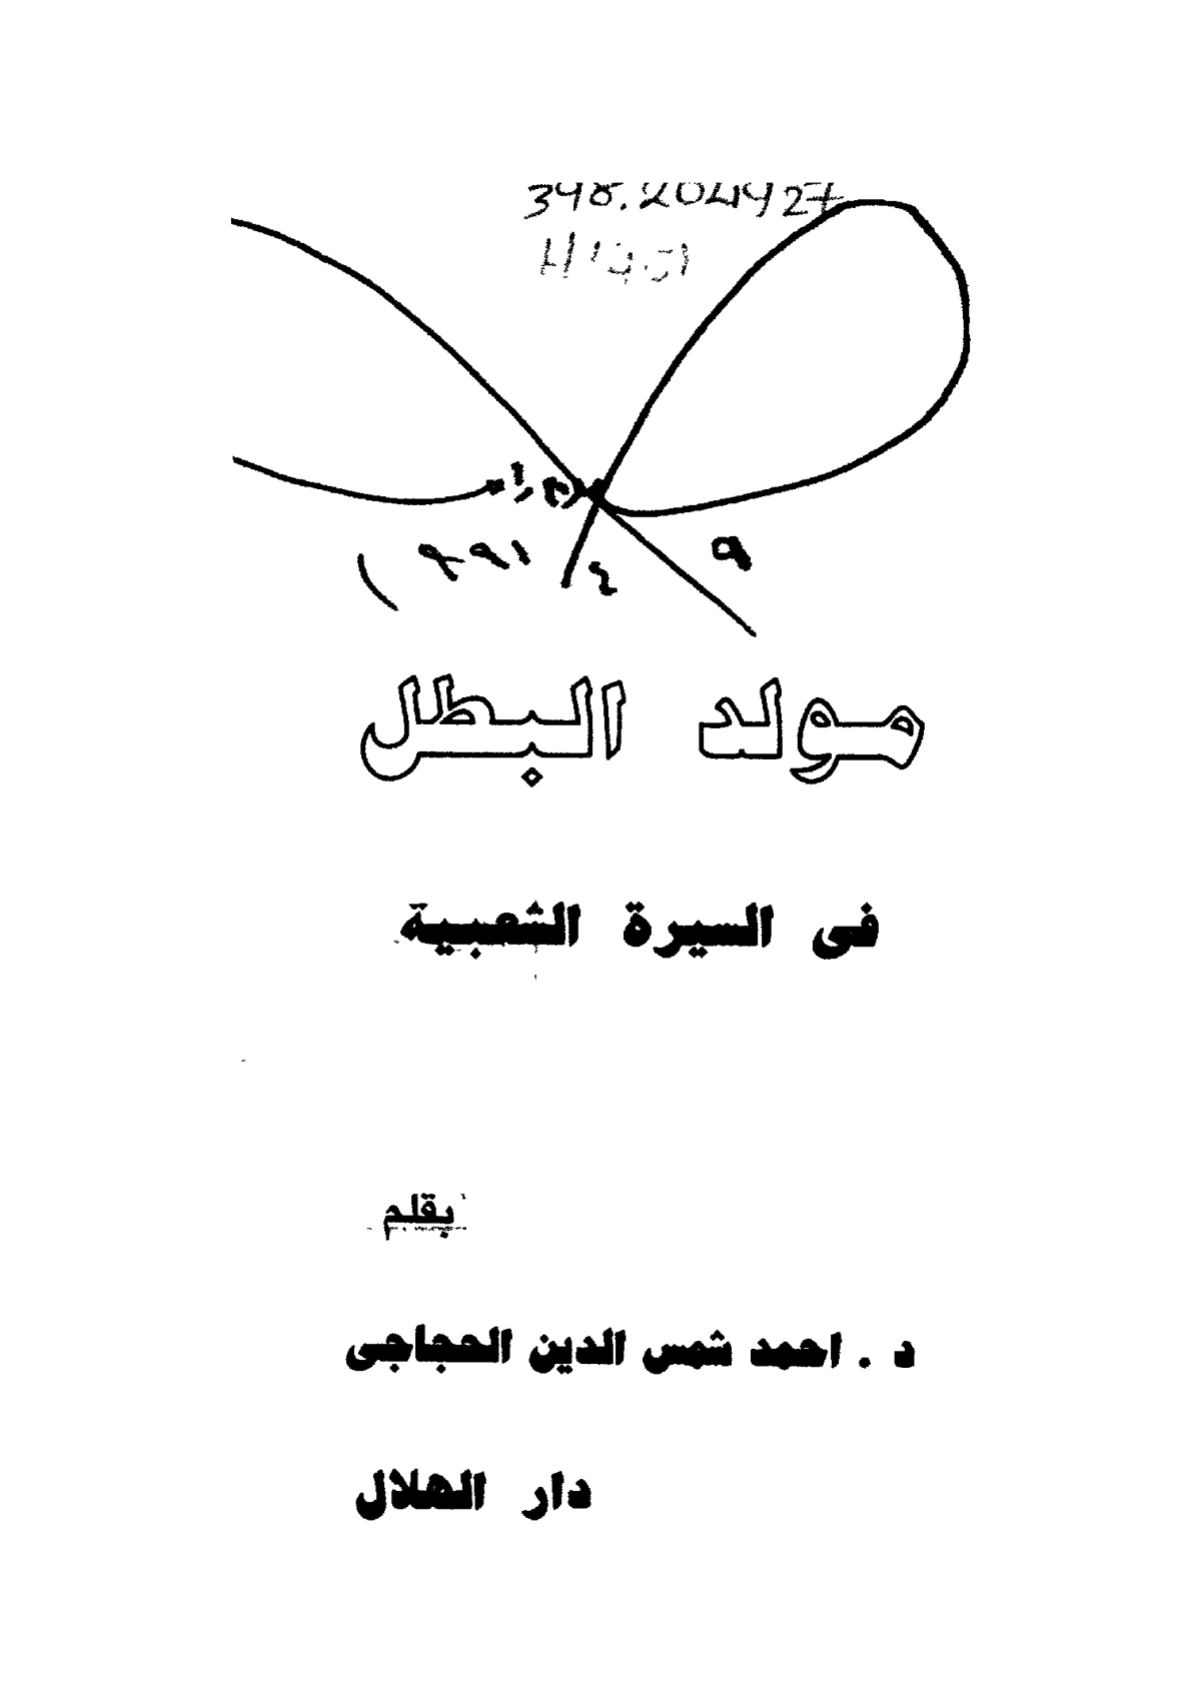 398.204927
مولد البطل
فى السيرة الشعبية
بقلم
د . احمد شمس الدين الحجاجى
دار الهلال